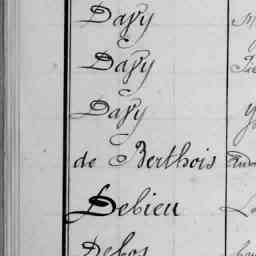 Davy
Davy
Davy
de Berthois
Debieu
Debos